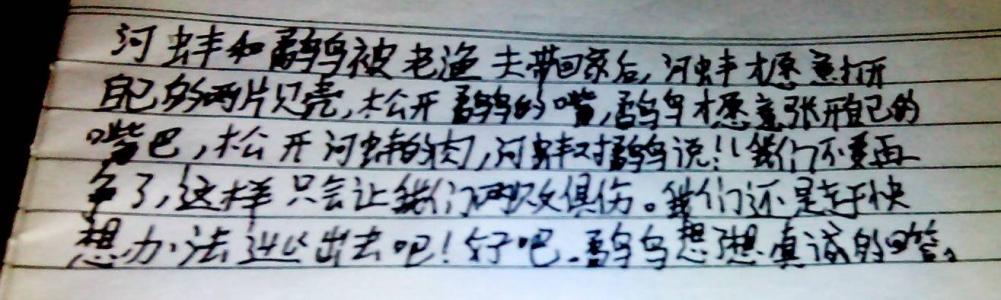 河蚌和鹬鸟被老渔夫带回家后,河蚌才愿意打开
自己的两片贝壳,松开鹬鸟的嘴,鹬鸟才愿意张开自己的
嘴巴,松开河蚌的肉,河蚌对鹬鸟说!!我们不要再
争了,这样只会让我们两败俱伤。我们还是赶快
想办法逃出去吧!好吧.鹬鸟想了想真诚的回答。